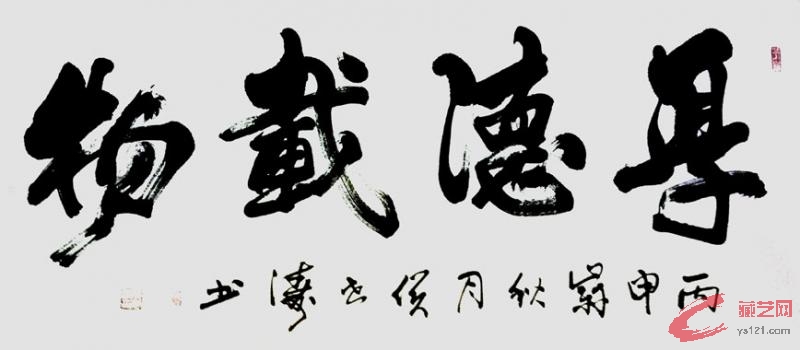 厚德載物
丙申歲秋月 濤书
藏艺网
ys121.com